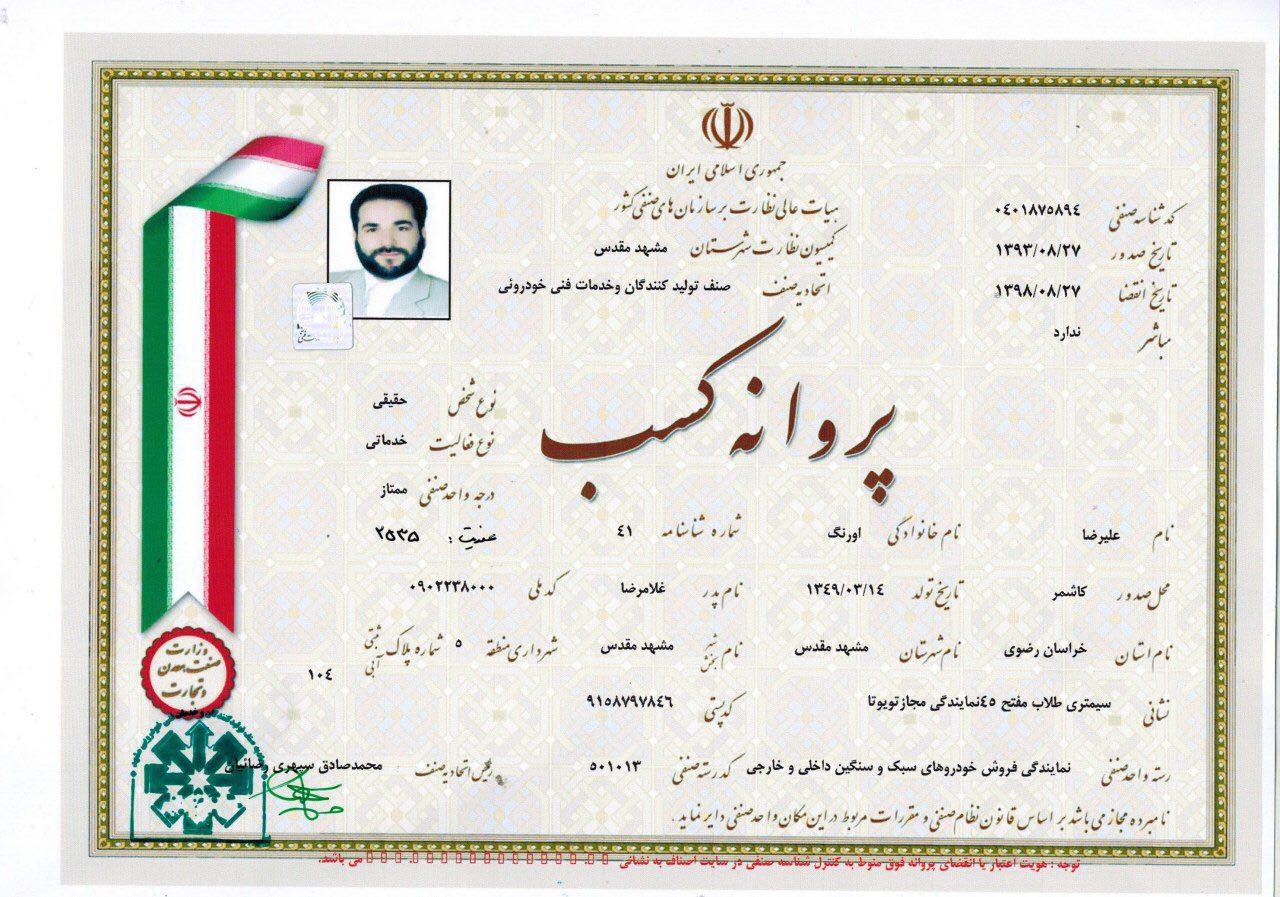 جمهوری اسلامی ایران
هیات عالی نظارت بر سازمان های صنفی کشور
کمیسیون نظارت شهرستان مشهد مقدس
اتحادیه صنف صنف تولید کنندگان وخدمات فنی خودروئی
کد شناسه صنفی ۰۴۰۱۸۷۵۸۹۴
تاریخ صدور ۱۳۹۳/۰۸/۲۷
تاریخ انقضا ۱۳۹۸/۰۸/۲۷
مباشر ندارد
پروانه کسب
نوع شخص حقیقی
نوع فعالیت خدماتی
درجه واحد صنفی ممتاز
نام علیرضا نام خانوادگی اورنگ شماره شناسنامه ۴۱ عضویت: ۲۵۳۵
محل صدور کاشمر تاریخ تولد ۱۳۴۹/۰۳/۱۴ نام پدر غلامرضا کد ملی ۰۹۰۲۲۳۸۰۰۰
نام استان خراسان رضوی نام شهرستان مشهد مقدس نام شهر بخش مشهد مقدس شهرداری منطقه ۵ شماره پلاک ثبتی آبی ۱۰۴
نشانی سیمتری طلاب مفتح ۴۵نمایندگی مجازتویوتا کدپستی ۹۱۵۸۷۹۷۸۴۶
رسته واحد صنفی نمایندگی فروش خودروهای سبک و سنگین داخلی و خارجی کد رسته صنفی ۵۰۱۰۱۳ رئیس اتحادیه صنف محمدصادق سپهری رضائیان
نامبرده مجاز می باشد بر اساس قانون نظام صنفی و مقررات مربوط در این مکان واحد صنفی دایر نماید .
توجه : هویت اعتبار یا انقضای پروانه فوق منوط به کنترل شناسه صنفی در سایت اصناف به نشانی می باشد.
وزارت
صنعت، معدن
و تجارت